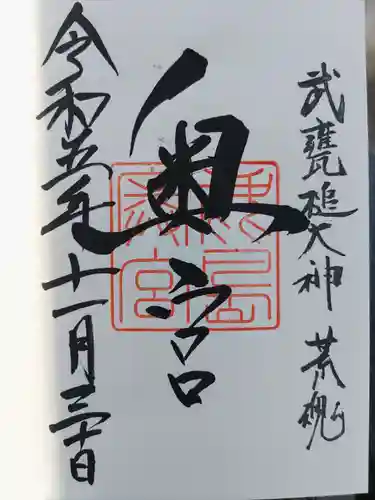 武甕槌大神 荒魂
奥宮
鹿島
奥宮
令和五年十一月三十日